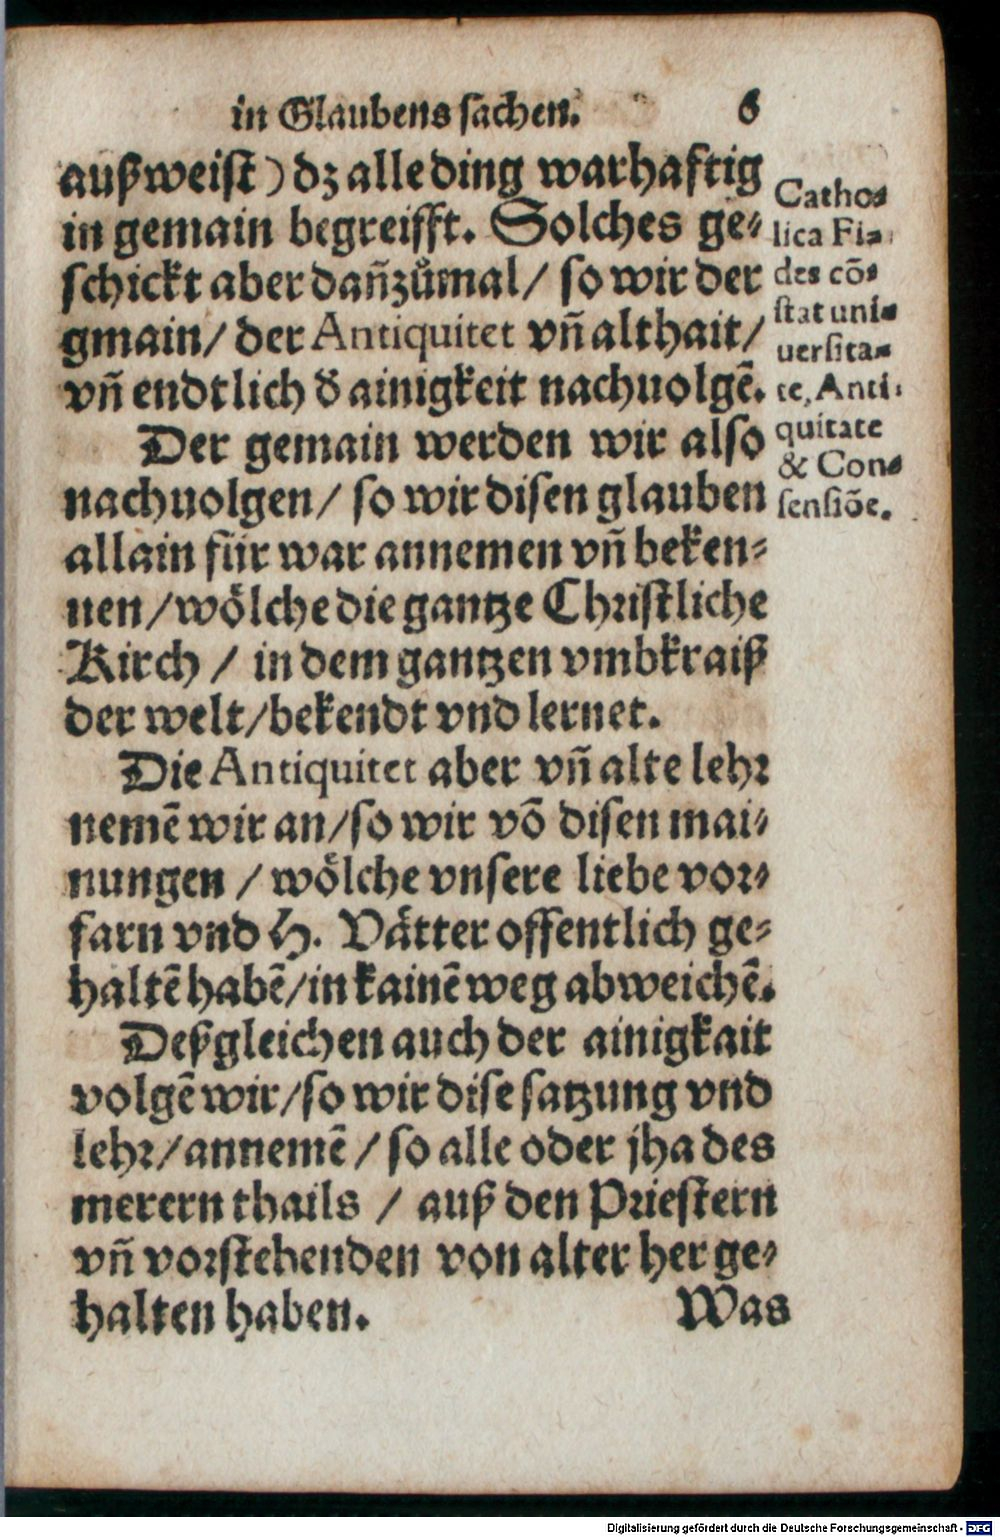 in Glaubens sachen. 6
außweist) dz alle ding warhaftig
in gemain begreifft. Solches ge⸗
schickt aber dañzůmal/ so wir der
gmain/ der Antiquitet vñ althait/
vñ endtlich d̕ ainigkeit nachuolgẽ.
Der gemain werden wir also
nachuolgen/ so wir disen glauben
allain für war annemen vñ beken⸗
nen/ wölche die gantze Christliche
Kirch / in dem gantzen vmbkraiß
der welt/ bekendt vnd lernet.
Die Antiquitet aber vñ alte lehr
nemẽ wir an/ so wir võ disen mai⸗
nungen / wölche vnsere liebe vor⸗
farn vnd H. Vätter offentlich ge⸗
haltẽ habẽ/ in kainẽ weg abweichẽ.
Deßgleichen auch der ainigkait
volgẽ wir/ so wir dise satzung vnd
lehr/ annemẽ / so alle oder jha des
merern thails / auß den Priestern
vñ vorstehenden von alter her ge⸗
halten haben. Was
Catho⸗
lica Fi⸗
des cõ⸗
stat uni⸗
uersita⸗
te, Anti⸗
quitate
& Con⸗
sensiõe.
Digitalisierung gefördert durch die Deutsche Forschungsgemeinschaft - DFG